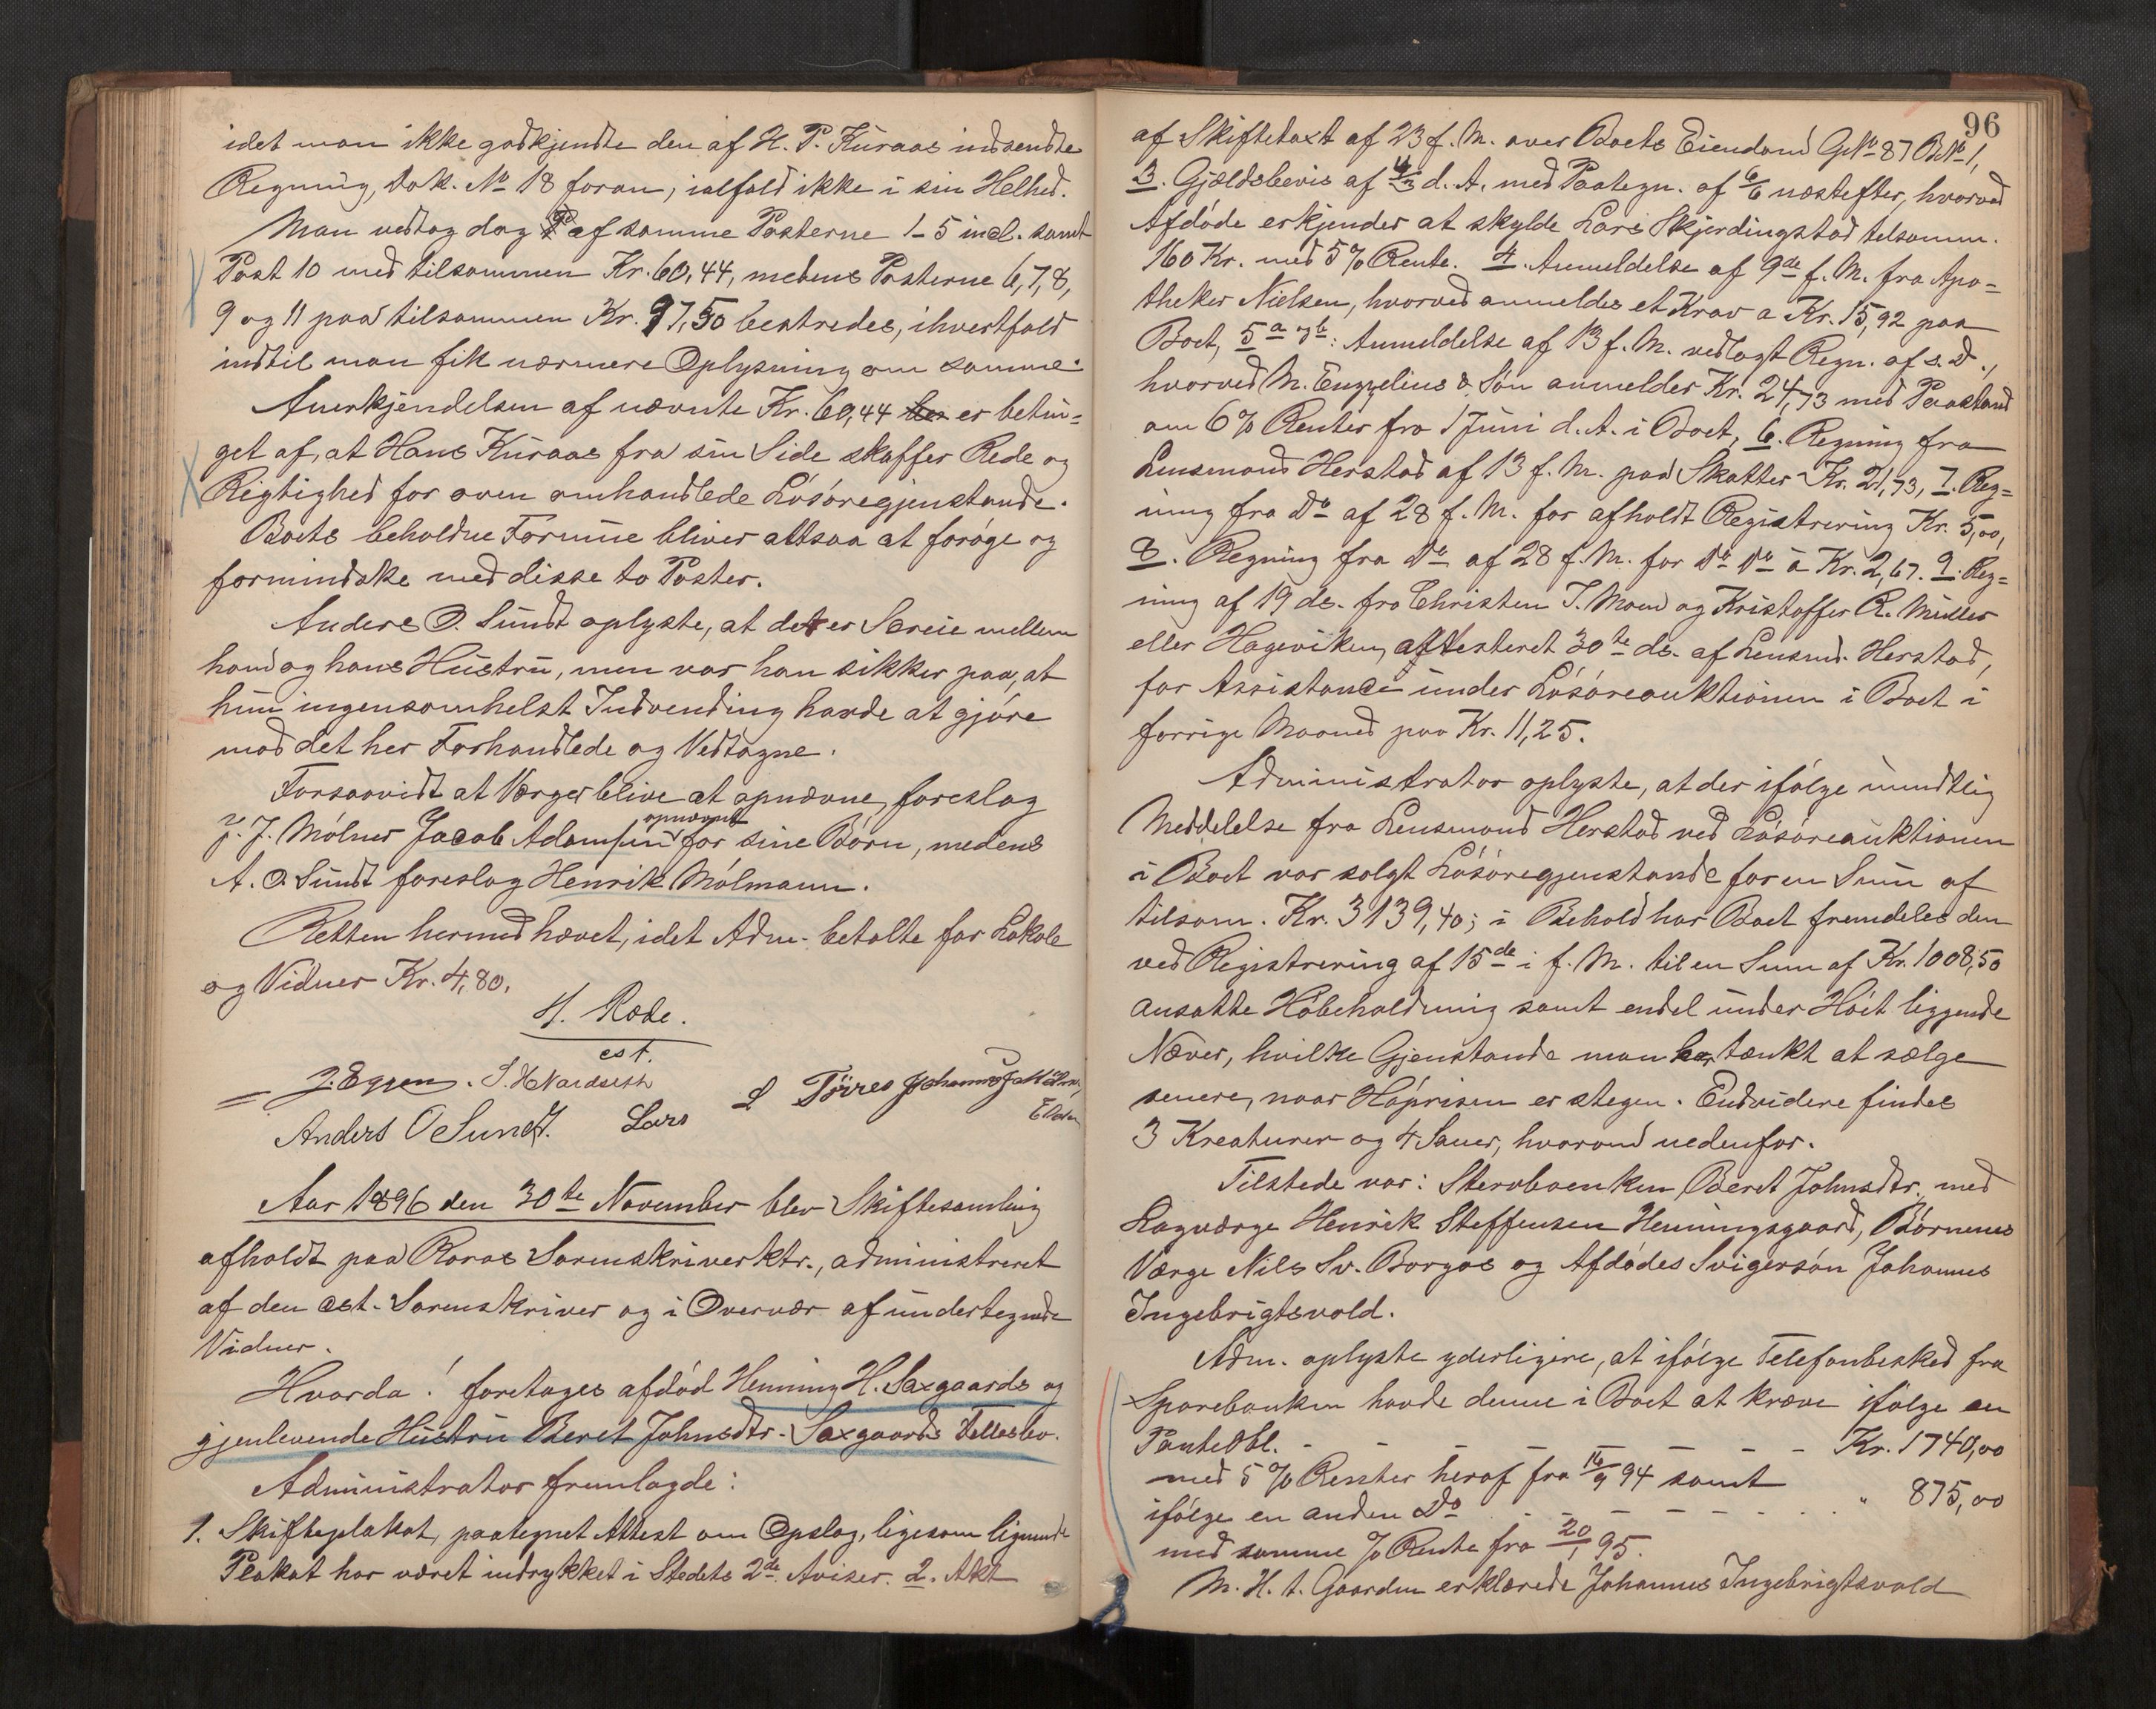 idet man ikke godkjendte den af H. P. Kuraas indsendte
Regning, Dok. No 18 foran, ialfald ikke i sin Helhed.
Man vedtog dog af samme Posterne 1-5 incl. samt
Post 10 med tilsammen Kr. 60,44, medens Posterne 6, 7, 8,
9 og 11 paa tilsammen Kr. 97,50 bestredes, ihvertfald
indtil man fik nærmere Oplysning om samme.
Anerkjendelsen af nævnte Kr. 60,44 er betin=
get af, at Hans Kuraas fra sin Side skaffer Rede og
Rigtighed for oven omhandlede Løsøregjenstande.
Boets beholdne Formue bliver altsaa at forøge og
formindske med disse to Poster.
Anders O. Sundt oplyste, at det er Særeie mellem
ham og hans Hustru, men var han sikker paa, at
hun ingensomhelst Indvending havde at gjøre
mod det her Forhandlede og Vedtagne.
Forsaavidt at Værger blive at opnævne, foreslog
J. J. Mølner Jacob Adamsen opnævnt for sine Børn, medens
A. O. Sundt foreslog Henrik Mølmann.
Retten hermed hævet, idet Adm. betalte for Lokale
og Vidner Kr. 4,80.
H. Rode.
cst.
J. Eggen. S. H. Nordseth
Anders O Sundt. Lars
Aar 1896 den 30te November blev Skiftesamling
afholdt paa Røros Sorenskriverktr., administreret
af den cst. Sorenskriver og i Overvær af undertegnede
Vidner.
Hvorda! foretoges afdød Henning H. Saxgaards og
gjenlevende Hustru Beret Johnsdtr. Saxgaards Fællesbo.
Administrator fremlagde:
1. Skifteplakat, paategnet Attest om Opslag, ligesom lignende
Plakat har været indrykket i Stedets 2de Aviser. 2. Akt
96
af Skiftetaxt af 23 f. M. over Boets Eiendom GNo 87 BNo 1,
3. Gjældsbevis af 4/3 d. A. med Paategn. af 6/6 næstefter, hvorved
Afdøde erkjender at skylde Lars Skjerdingstad tilsamm.
160 Kr. med 5% Rente. 4. Anmeldelse af 9de f. M. fra Apo=
theker Nielsen, hvorved anmeldes et Krav a Kr. 15,92 paa
Boet, 5 a og b: Anmeldelse af 13 f. M. vedlagt Regn. af s. D.,
hvorved M. Engzelius & Søn anmelder Kr. 24,73 med Paastand
om 6% Renter fra 1 Juni d. A. i Boet, 6. Regning fra
Lensmand Herstad af 13 f. M. paa Skatter Kr. 21,73, 7. Reg=
ning fra Do af 28 f. M. for afholdt Registrering Kr. 5,00,
8. Regning fra Do af 28 f. M. for Do Do à Kr. 2,67. 9. Reg=
ning af 19 ds. fra Christen J. Moen og Kristoffer R. Müller
eller Hageviken, attesteret 30te ds. af Lensmd. Herstad,
for Assistance under Løsøreauktionen i Boet i
forrige Maaned paa Kr. 11,25.
Administrator oplyste, at der ifølge mundtlig
Meddelelse fra Lensmand Herstad ved Løsøreauktionen
i Boet var solgt Løsøregjenstande for en Sum af
tilsam. Kr. 3139,40; i Behold har Boet fremdeles den
ved Registrering af 15de i f. M. til en Sum af Kr. 1008,50
ansatte Høbeholdning samt endel under Høet liggende
Næver, hvilke Gjenstande man har tænkt at sælge
senere, naar Høprisen er stegen. Endvidere findes
3 Kreaturer og 4 Sauer, hvorom nedenfor.
Tilstede var: Stervboenken Beret Johnsdtr. med
Lagværge Henrik Steffensen Henningsgaard, Børnenes
Værge Nils Sv. Borgos og Afdødes Svigersøn Johannes
Ingebrigtsvold.
Adm. oplyste yderligere, at ifølge Telefonbesked fra
Sparebanken havde denne i Boet at kræve ifølge en
PanteObl. - - - - - - - Kr. 1740,00
med 5% Renter heraf fra 16/9 94 samt
ifølge en anden Do - - - - - " 875,00
med samme % Rente fra 20/1 95.
M. H. t. Gaarden erklærede Johannes Ingebrigtsvold